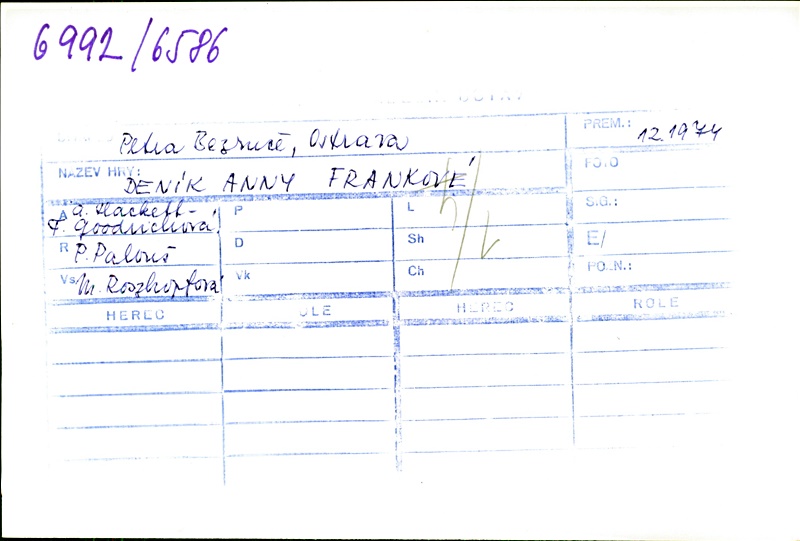 6992/6586
Petra Bezruče, Ostrava
PREM.: 12.1974
NÁZEV HRY: DENÍK ANNY FRANKOVÉ
FOTO
A A. Hackett-
F. Goodrichová
P
L
S.G.:
R P. Palouš
D
Sh
E/
Vs M. Roszkopfová
Vk
Ch
PO N.:
HEREC
HEREC
ROLE